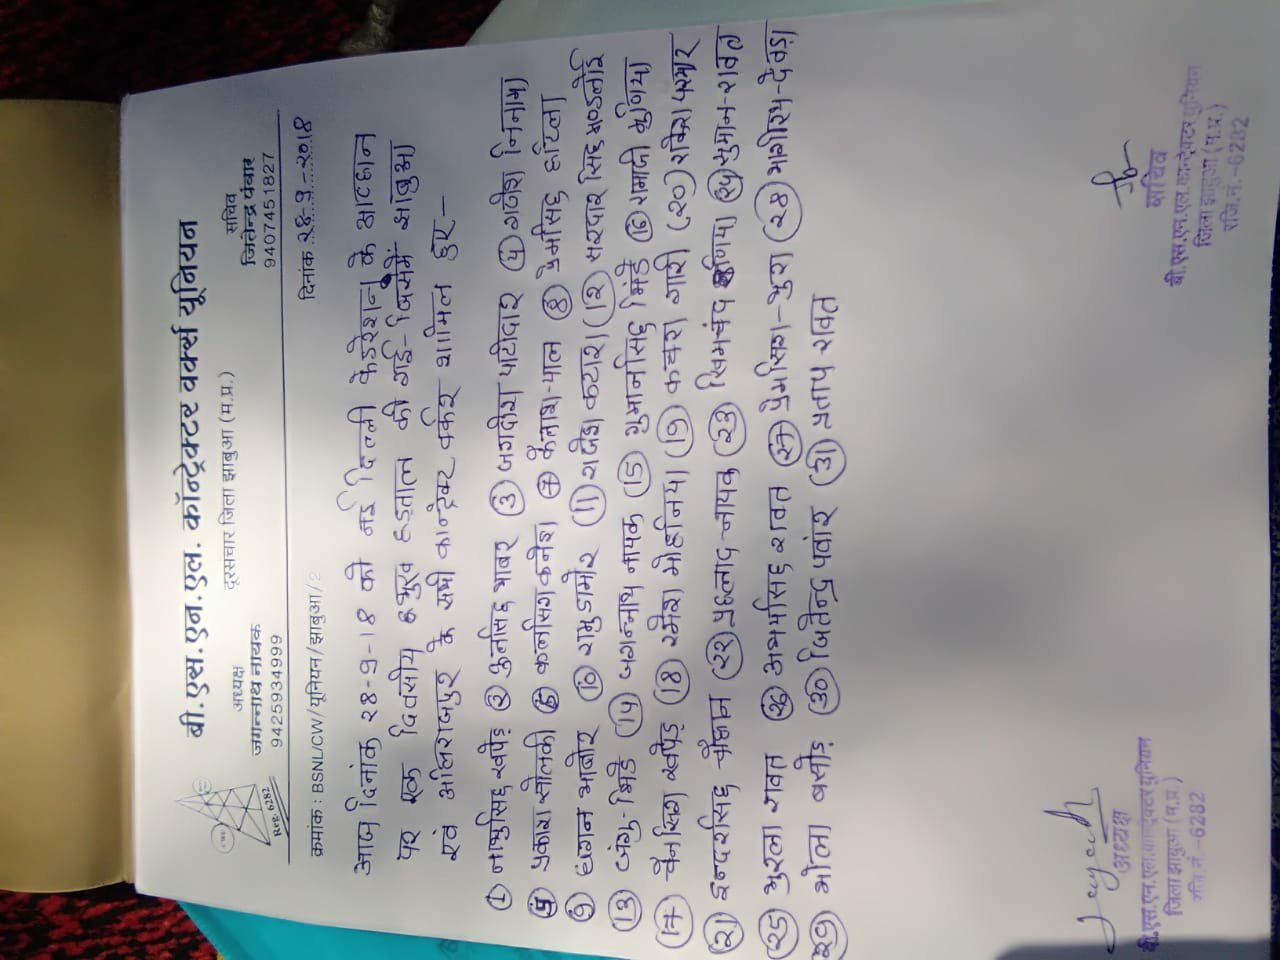 बी.एस.एन.एल. कॉन्ट्रेक्टर वर्क्स यूनियन
दूरसंचार जिला झाबुआ (म.प्र.)
Reg. 6282
अध्यक्ष
जगन्नाथ नायक
9425934999
सचिव
जितेन्द्र पंवार
9407451827
क्रमांक : BSNL/CW/यूनियन/झाबुआ/2
दिनांक २८-9-२०१८
आज दिनांक २८-9-18 को नई दिल्ली फेडरेशन के आव्हान
पर एक दिवसीय भुख हडताल की गई- जिसमें झाबुआ
एवं अलिराजपुर के सभी कान्ट्रेक्ट वर्कर शामिल हुए-
① नाथुसिंह खपेड़ ② झुनसिंह भाबर ③ जगदीश पाटीदार ④ राजेश निनामा
⑤ प्रकाश सोलंकी ⑥ कलसिंग कनेश ⑦ कैलाश-पाल ⑧ प्रेमसिंह हटिला
⑨ छगन भाबोर ⑩ रामु डामोर ⑪ राजेश कटारा ⑫ सरदार सिंह मण्डलोई
⑬ जंगु-भिंडे ⑭ जगन्नाथ नायक ⑮ गुमानसिंह भिंडे ⑯ रामाजी भुणिया
⑰ चैनसिंग खपेड़ ⑱ रमेश मोहनिया ⑲ कचरा गारी ⑳ राकेश परमार
㉑ इन्दरसिंह चौहान ㉒ प्रहलाद-नायक ㉓ सिमचंद भुणिया ㉔ गुमान-रावत
㉕ भुरला रावत ㉖ अभयसिंह रावत ㉗ प्रेमसिंग-भुरा ㉘ भागीरथ-देवड़ा
㉙ भोला बसोड़ ㉚ जितेन्द्र पवांर ㉛ प्रताप रावत
अध्यक्ष
बी.एस.एन.एल.कान्ट्रेक्टर यूनियन
जिला झाबुआ (म.प्र.)
रजि. नं. -6282
सचिव
बी.एस.एन.एल.कान्ट्रेक्टर यूनियन
जिला झाबुआ (म.प्र.)
रजि. नं. -6282